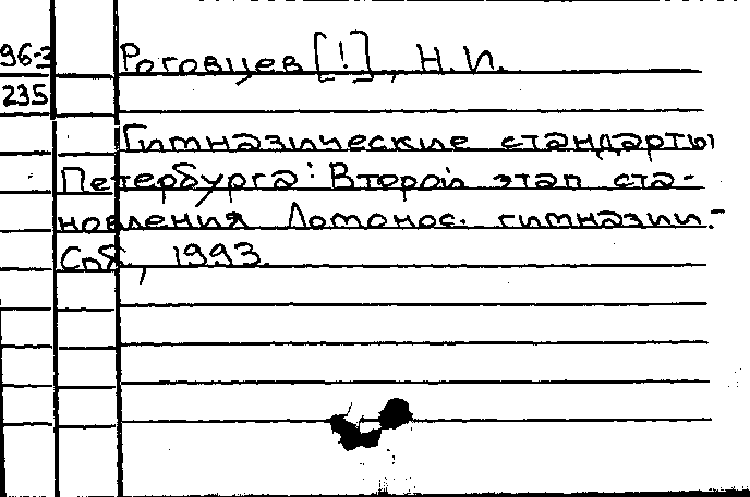 96-3 Роговцев [!], Н.И.
235
Гимназические стандарты
Петербурга: Второй этап ста-
новления Ломонос. гимназии.-
Спб, 1993.